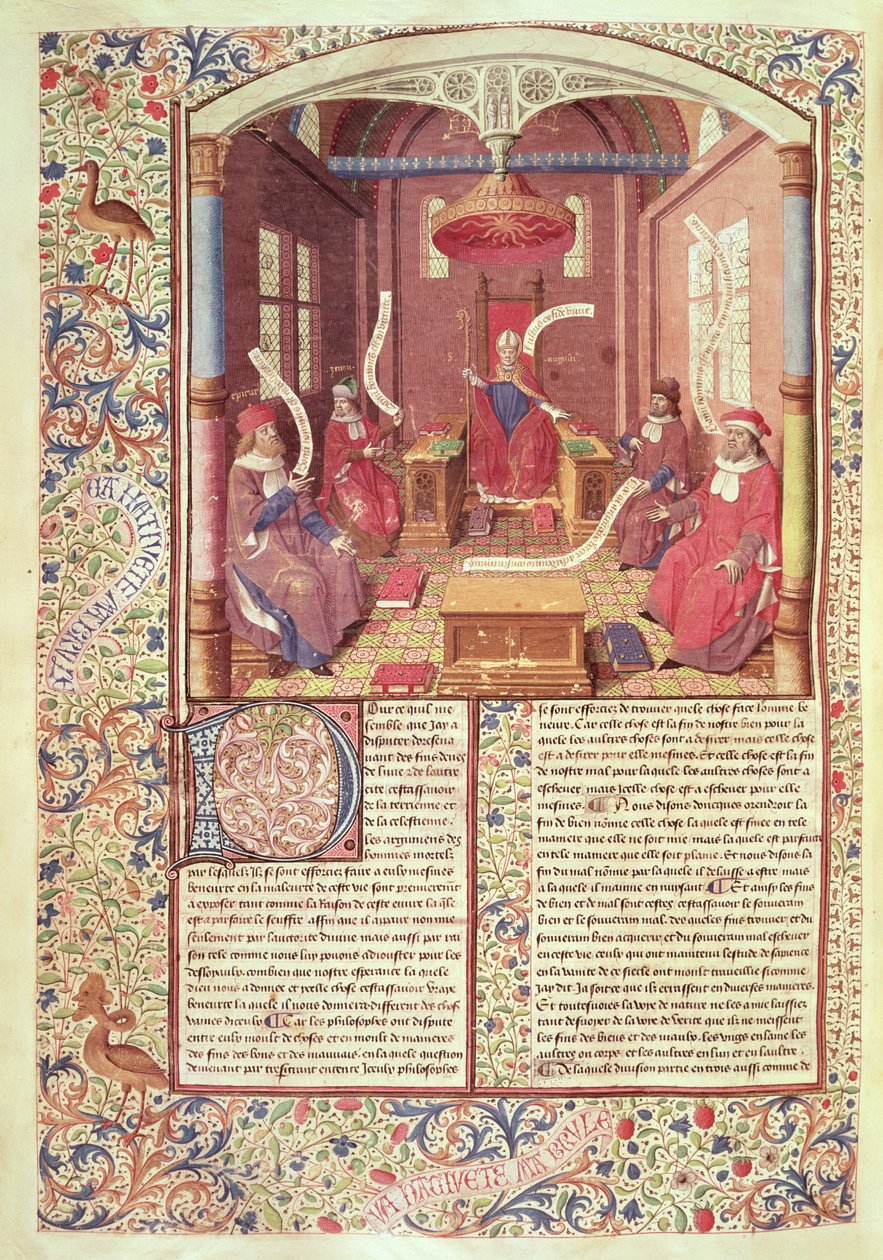 zenon
S. augusti
iustus ex fide vivit.
VA HATIVETE MA BRVLE
Our ce quil me
semble que Jay a
disputer doresena
uant des fins deues
de lune et de lautre
cite cestassauoir
de la terrienne et
de la celestienne.
les argumens des
hommes mortelz
par lesquelz ilz se sont efforciez faire a eulx mesmes
beneurte en la maleurte de ceste vie sont premierement
a exposer tant comme la Raison de ceste euure laqle
est a parfaire le seuffre affin que il appaire non mie
seulement par lauctorite diuine mais aussi par rai
son telle comme nous luy pouons adiouster pour les
desloyaulx. combien que nostre esperance la quele
dieu nous a donnee et ycelle chose cestassauoir vraye
beneurte la quele il nous donnera different des choses
vaines diceulx Car les philosophes ont dispute
entre eulx moult de choses et en moult de manieres
des fins des bons et des mauuais. en la quele question
demenant par tresgrant entente Iceulx philosophes
se sont efforciez de trouuer quele chose face lomme be
neure. Car celle chose est la fin de nostre bien pour la
quele les aultres choses sont a desirer mais celle chose
est a desirer pour elle mesmes. Et celle chose est la fin
de nostre mal pour la quele les aultres choses sont a
escheuer mais Icelle chose est a escheuer pour elle
mesmes. Nous disons doncques orendroit la
fin de bien nomme celle chose la quele est finee en tele
maniere que elle ne soit mie mais la quele est parfaite
en tele maniere que elle soit plaine. Et nous disons la
fin du mal nomme par la quele il delaisse a estre mais
a la quele il maine en nuysant Et ainsy les fins
de bien et de mal sont cestes cestassauoir le souuerain
bien et le souuerain mal. des queles fins trouuer et du
souuerain bien acquerir et du souuerain mal escheuer
en ceste vie ceulx qui ont maintenu lestude de sapience
en la vanite de ce siecle ont moult trauaillie sicomme
Jay dit. Ja soit ce que ilz errassent en diuerses manieres.
Et toutesuoies la voye de nature ne les a mie laissiez
tant desuoyer de la voye de verite que ilz ne meissent
les fins des biens et des maulx. les vngs en lame les
aultres ou corps. et les aultres en lun et en laultre.
De la quele diuision partie en trois aussi comme de
VA HATIVETE MA BRVLE